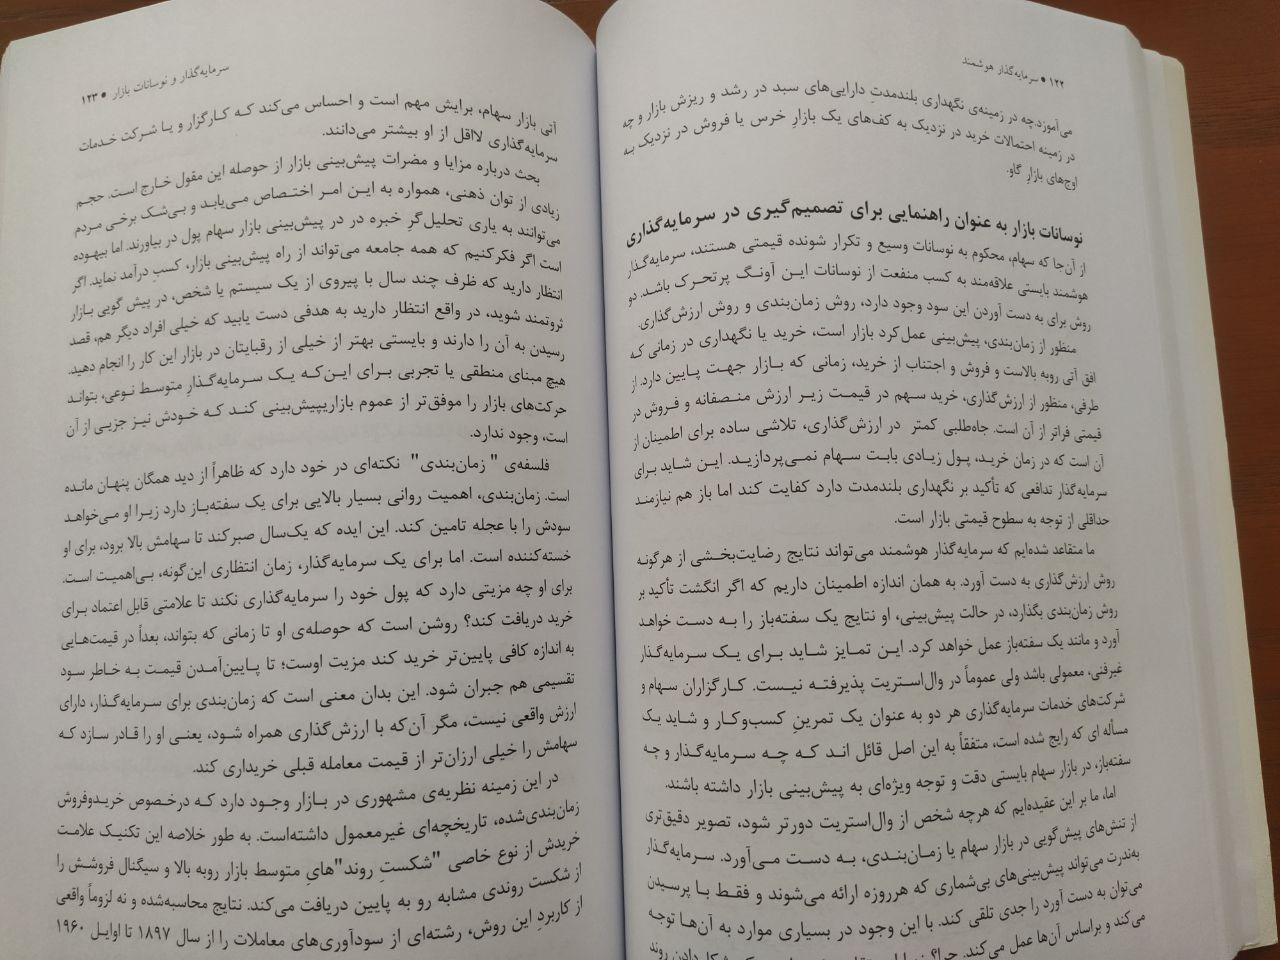 ۱۲۲ ● سرمایه‌گذار هوشمند
می‌آموزد.چه در زمینه‌ی نگهداری بلندمدتِ دارایی‌های سبد در رشد و ریزش بازار و چه
در زمینه احتمالات خرید در نزدیک به کف‌های یک بازارِ خرس یا فروش در نزدیک به
اوج‌های بازارِ گاو.
نوسانات بازار به عنوان راهنمایی برای تصمیم‌گیری در سرمایه‌گذاری
از آن‌جا که سهام، محکوم به نوسانات وسیع و تکرار شونده قیمتی هستند، سرمایه‌گذار
هوشمند بایستی علاقه‌مند به کسب منفعت از نوسانات این آونگ پرتحرک باشد. دو
روش برای به دست آوردن این سود وجود دارد، روش زمان‌بندی و روش ارزش‌گذاری.
منظور از زمان‌بندی، پیش‌بینی عمل‌کرد بازار است، خرید یا نگهداری در زمانی که
افق آتی روبه بالاست و فروش و اجتناب از خرید، زمانی که بازار جهت پایین دارد. از
طرفی، منظور از ارزش‌گذاری، خرید سهم در قیمت زیر ارزش منصفانه و فروش در
قیمتی فراتر از آن است. جاه‌طلبی کمتر در ارزش‌گذاری، تلاشی ساده برای اطمینان از
آن است که در زمان خرید، پول زیادی بابت سهام نمی‌پردازید. این شاید برای
سرمایه‌گذار تدافعی که تأکید بر نگهداری بلندمدت دارد کفایت کند اما باز هم نیازمند
حداقلی از توجه به سطوح قیمتی بازار است.
ما متقاعد شده‌ایم که سرمایه‌گذار هوشمند می‌تواند نتایج رضایت‌بخشی از هرگونه
روش ارزش‌گذاری به دست آورد. به همان اندازه اطمینان داریم که اگر انگشت تأکید بر
روش زمان‌بندی بگذارد، در حالت پیش‌بینی، او نتایج یک سفته‌باز را به دست خواهد
آورد و مانند یک سفته‌باز عمل خواهد کرد. این تمایز شاید برای یک سرمایه‌گذار
غیرفنی، معمولی باشد ولی عموماً در وال‌استریت پذیرفته نیست. کارگزاران سهام و
شرکت‌های خدمات سرمایه‌گذاری هر دو به عنوان یک تمرینِ کسب‌وکار و شاید یک
مسأله ای که رایج شده است، متفقاً به این اصل قائل اند که چه سرمایه‌گذار و چه
سفته‌باز، در بازار سهام بایستی دقت و توجه ویژه‌ای به پیش‌بینی بازار داشته باشند.
اما، ما بر این عقیده‌ایم که هرچه شخص از وال‌استریت دورتر شود، تصویر دقیق‌تری
از تنش‌های پیش‌گویی در بازار سهام یا زمان‌بندی، به دست می‌آورد. سرمایه‌گذار
به‌ندرت می‌تواند پیش‌بینی‌های بی‌شماری که هرروزه ارائه می‌شوند و فقط با پرسیدن
می‌توان به دست آورد را جدی تلقی کند. با این وجود در بسیاری موارد به آن‌ها توجه
می‌کند و براساس آن‌ها عمل می‌کند. چرا؟
سرمایه‌گذار و نوسانات بازار ● ۱۲۳
آتی بازار سهام، برایش مهم است و احساس می‌کند که کارگزار و یا شرکت خدمات
سرمایه‌گذاری لااقل از او بیشتر می‌دانند.
بحث درباره مزایا و مضرات پیش‌بینی بازار از حوصله این مقول خارج است. حجم
زیادی از توان ذهنی، همواره به این امر اختصاص می‌یابد و بی‌شک برخی مردم
می‌توانند به یاری تحلیل‌گرِ خبره در در پیش‌بینی بازار سهام پول در بیاورند. اما بیهوده
است اگر فکرکنیم که همه جامعه می‌تواند از راه پیش‌بینی بازار، کسبِ درآمد نماید. اگر
انتظار دارید که ظرف چند سال با پیروی از یک سیستم یا شخص، در پیش گویی بازار
ثروتمند شوید، در واقع انتظار دارید به هدفی دست یابید که خیلی افراد دیگر هم، قصد
رسیدن به آن را دارند و بایستی بهتر از خیلی از رقبایتان در بازار این کار را انجام دهید.
هیچ مبنای منطقی یا تجربی برای این‌که یک سرمایه‌گذارِ متوسط نوعی، بتواند
حرکت‌های بازار را موفق‌تر از عموم بازارپیش‌بینی کند که خودش نیز جزیی از آن
است، وجود ندارد.
فلسفه‌ی " زمان‌بندی" نکته‌ای در خود دارد که ظاهراً از دید همگان پنهان مانده
است. زمان‌بندی، اهمیت روانی بسیار بالایی برای یک سفته‌باز دارد زیرا او می‌خواهد
سودش را با عجله تامین کند. این ایده که یک‌سال صبرکند تا سهامش بالا برود، برای او
خسته‌کننده است. اما برای یک سرمایه‌گذار، زمان انتظاری این‌گونه، بی‌اهمیت است.
برای او چه مزیتی دارد که پول خود را سرمایه‌گذاری نکند تا علامتی قابل اعتماد برای
خرید دریافت کند؟ روشن است که حوصله‌ی او تا زمانی که بتواند، بعداً در قیمت‌هایی
به اندازه کافی پایین‌تر خرید کند مزیت اوست؛ تا پایین‌آمدن قیمت به خاطر سود
تقسیمی هم جبران شود. این بدان معنی است که زمان‌بندی برای سرمایه‌گذار، دارای
ارزش واقعی نیست، مگر آن‌که با ارزش‌گذاری همراه شود، یعنی او را قادر سازد که
سهامش را خیلی ارزان‌تر از قیمت معامله قبلی خریداری کند.
در این زمینه نظریه‌ی مشهوری در بازار وجود دارد که درخصوص خریدوفروش
زمان‌بندی‌شده، تاریخچه‌ای غیرمعمول داشته‌است. به طور خلاصه این تکنیک علامت
خریدش از نوع خاصی "شکستِ روند"هایِ متوسط بازار روبه بالا و سیگنال فروشش را
از شکست روندی مشابه رو به پایین دریافت می‌کند. نتایج محاسبه‌شده و نه لزوماً واقعی
از کاربردِ این روش، رشته‌ای از سودآوری‌های معاملات را از سال ۱۸۹۷ تا اوایل ۱۹۶۰